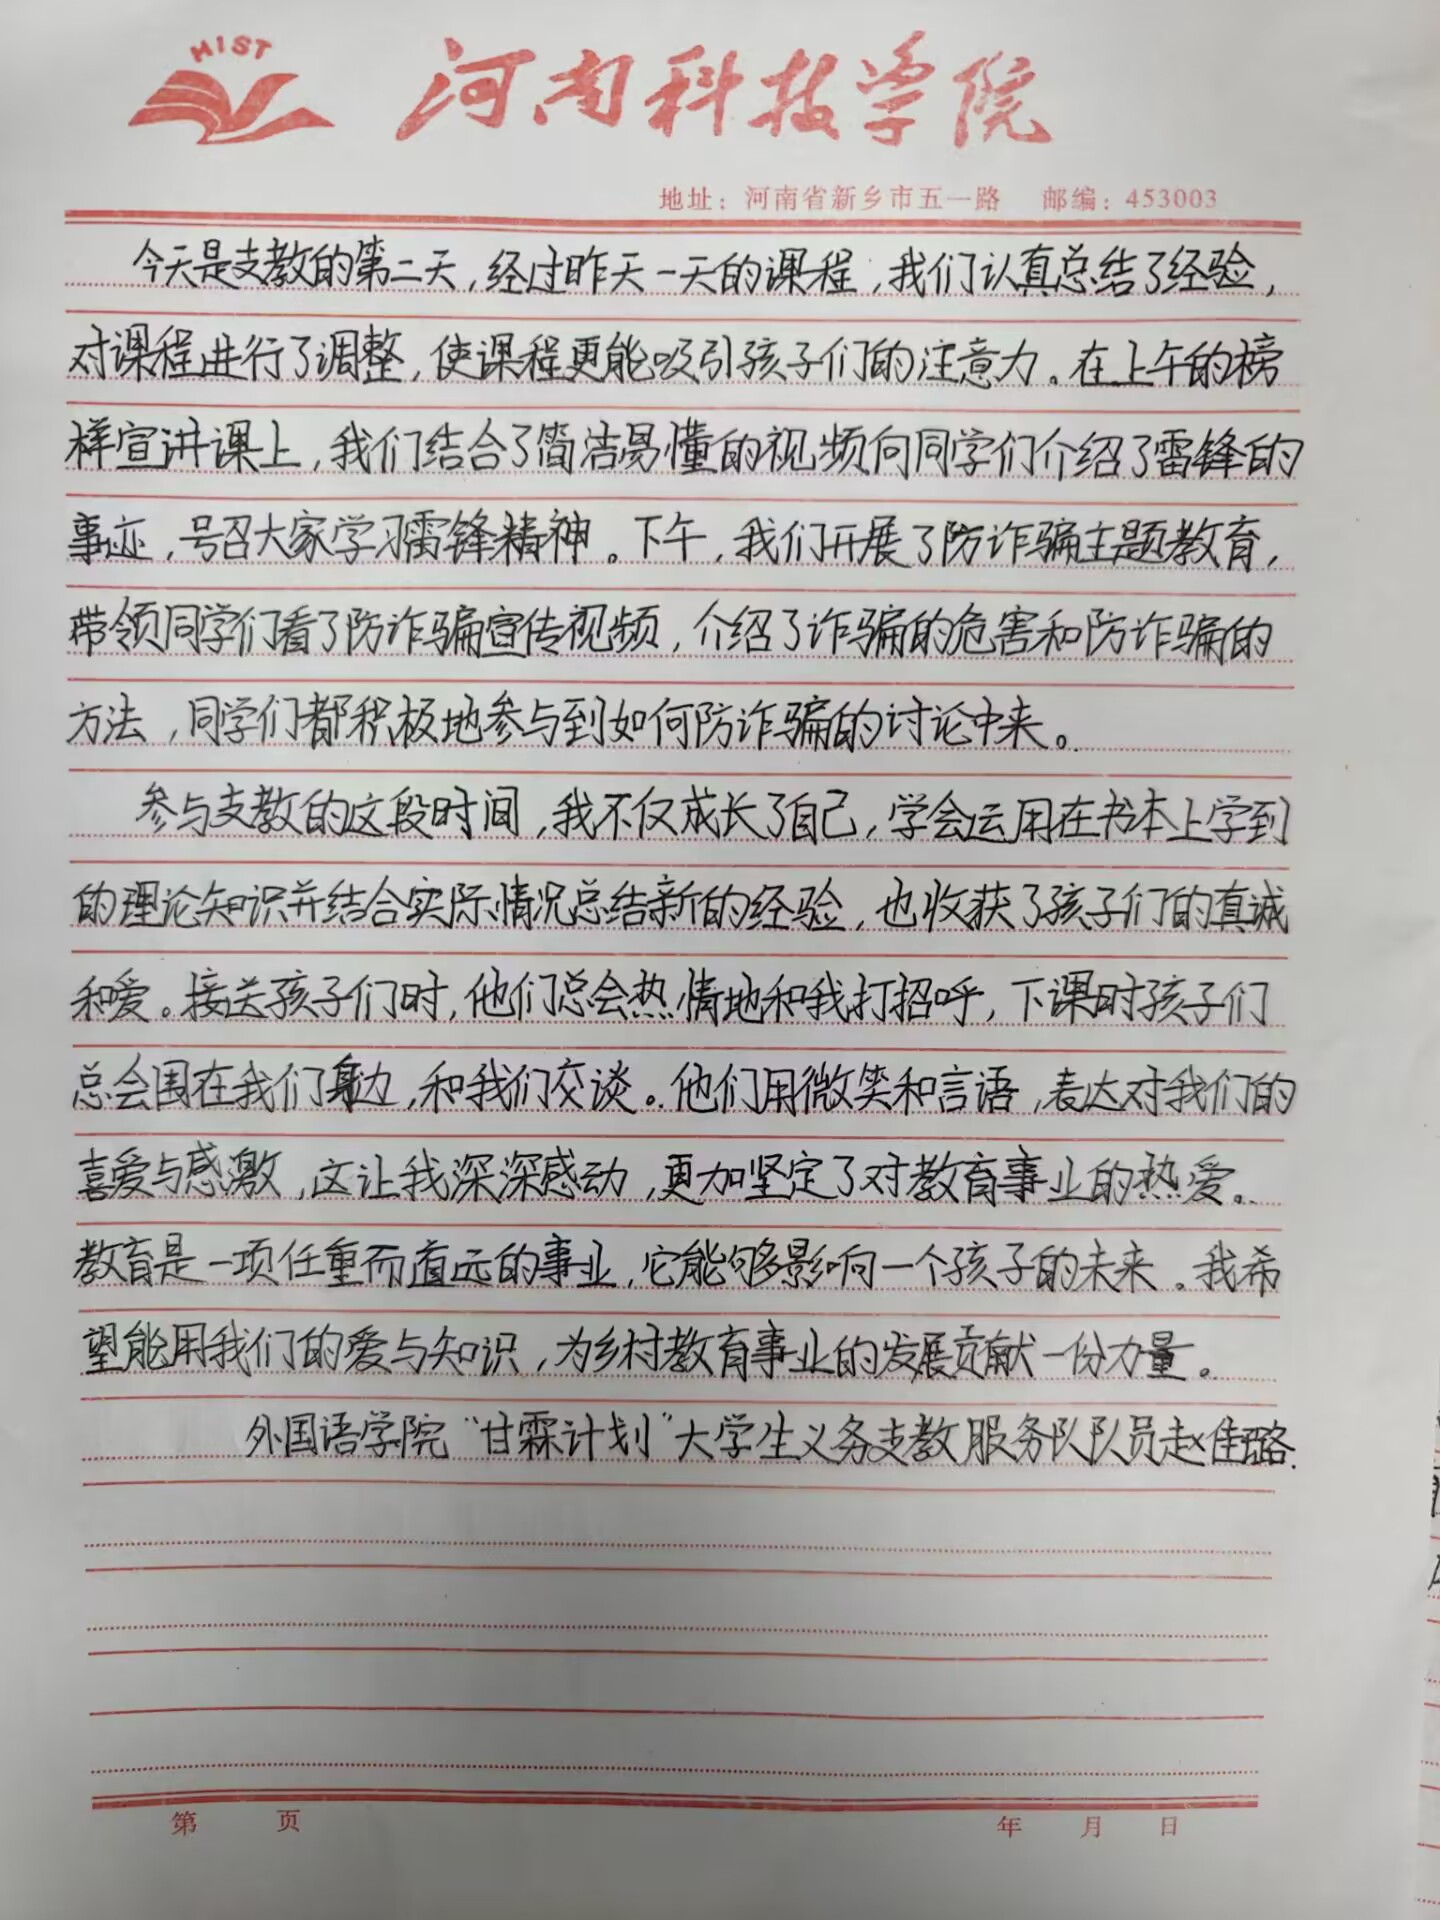 HIST
河南科技学院
地址：河南省新乡市五一路 邮编：453003
今天是支教的第二天，经过昨天一天的课程，我们认真总结了经验，
对课程进行了调整，使课程更能吸引孩子们的注意力。在上午的榜
样宣讲课上，我们结合了简洁易懂的视频向同学们介绍了雷锋的
事迹，号召大家学习雷锋精神。下午，我们开展了防诈骗主题教育，
带领同学们看了防诈骗宣传视频，介绍了诈骗的危害和防诈骗的
方法，同学们都积极地参与到如何防诈骗的讨论中来。
参与支教的这段时间，我不仅成长了自己，学会运用在书本上学到
的理论知识并结合实际情况总结新的经验，也收获了孩子们的真诚
和爱。接送孩子们时，他们总会热情地和我打招呼，下课时孩子们
总会围在我们身边，和我们交谈。他们用微笑和言语，表达对我们的
喜爱与感激，这让我深深感动，更加坚定了对教育事业的热爱。
教育是一项任重而道远的事业，它能够影响一个孩子的未来。我希
望能用我们的爱与知识，为乡村教育事业的发展贡献一份力量。
外国语学院“甘霖计划”大学生义务支教服务队队员赵佳璐.
第 页 年 月 日